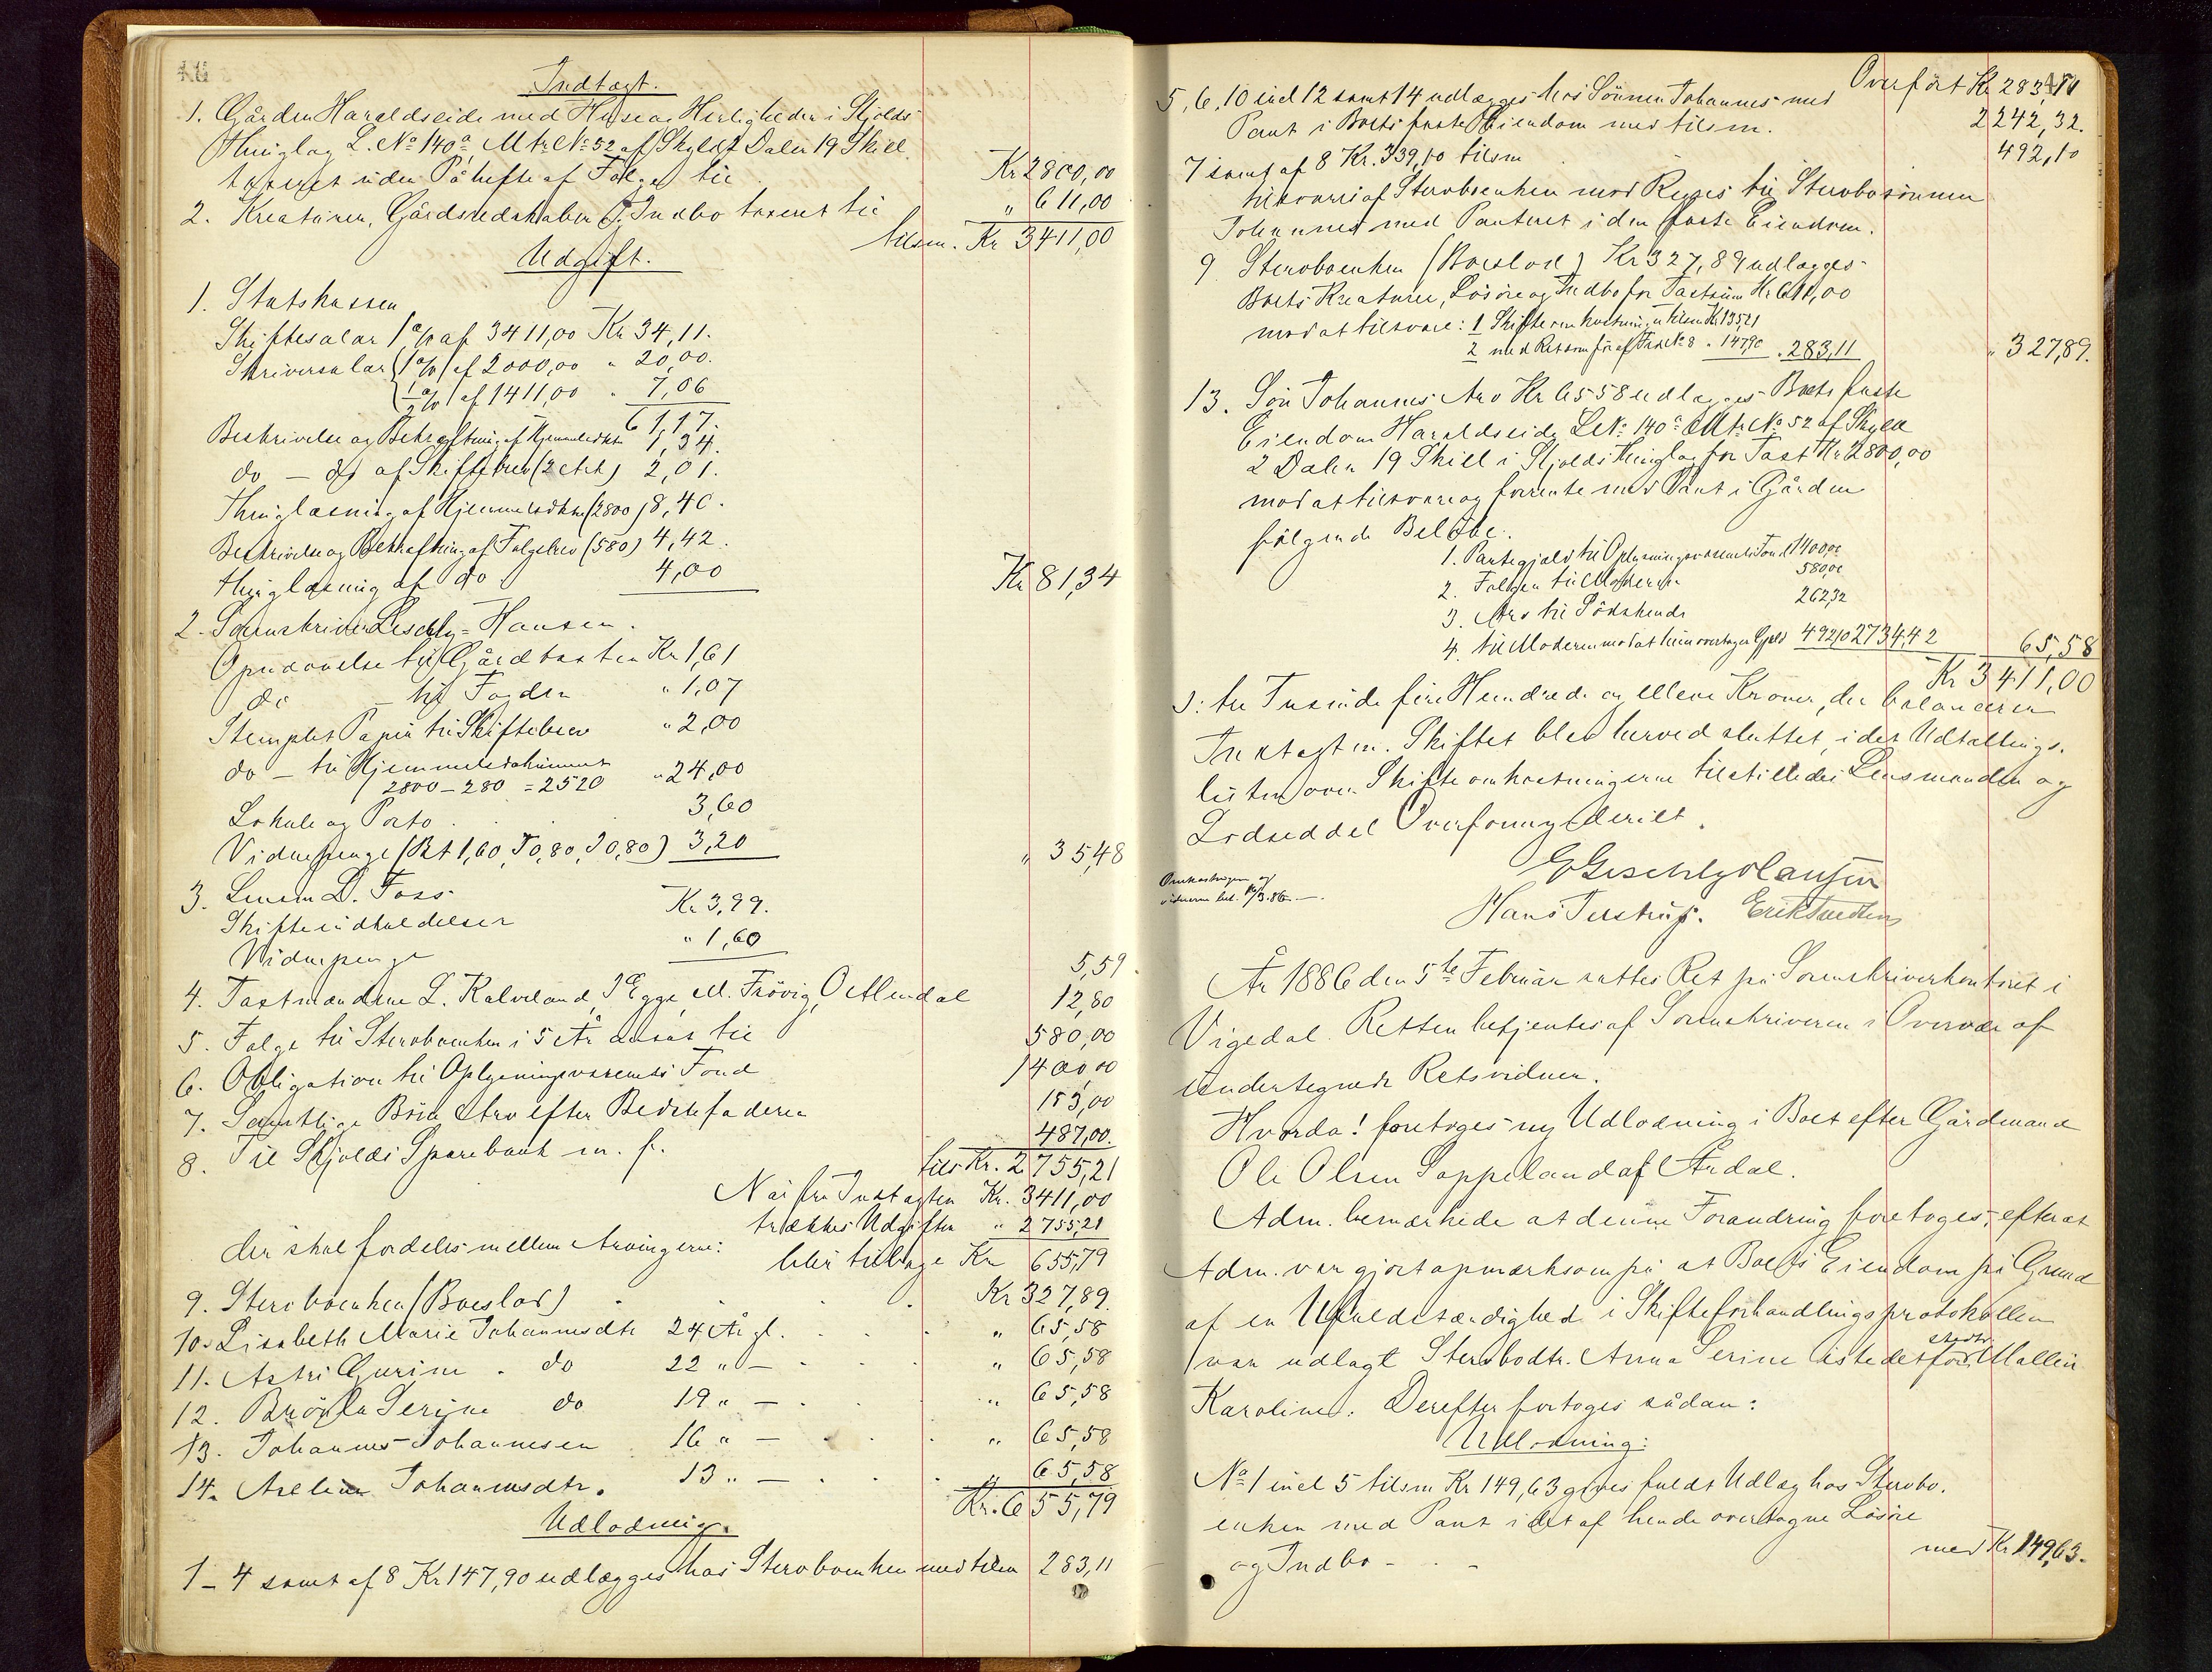 Indtægt.
1. Gården Haraldseide med Huse og Herligheder i Skjolds
Thinglag L. No 140a Mtr No 52 af Skyld 2 Daler 19 Skill.
taxeret uden Påhefte af Følge til Kr 2800,00
2. Kreaturer, Gårdsredskaber & Indbo taxeret til " 611,00
tilsm. Kr 3411,00
Udgift.
1. Statskassen
Skiftesalar 1 % af 3411,00 Kr 34,11.
Skriversalar (1 % af 2000,00 " 20,00.
(½ % af 1411,00 " 7,06
61,17.
Beskrivelse og Bekræftning af Hjemmelsdkt 1,34.
do — do af Skiftebrev (2 Ark) 2,01.
Thinglæsning af Hjemmelsdkm (2800) 8,40.
Beskrivelse og Bekræftning af Følgebrev (580) 4,42.
Thinglæsning af do 4,00
Kr 81,34
2. Sorenskriver Leschly-Hansen.
Opudovelse til Gårdtaxten Kr 1,61
do — til Fogden " 1,07
Stemplet Papir til Skiftebrev " 2,00
do — til Hjemmelsdokument
(2800 – 280 = 2520 " 24,00
Lokale og Porto 3,60
Vidnepenge (Bet 1,60, T 0,80, J 0,80) 3,20
" 35,48
3. Lensm D. Foss
Skifteindkaldelser Kr 3,99.
Vidnepenge " 1,60
5,59
4. Taxtmændene L. Kalveland, J Egge, M. Frøvig, O Mundal 12,80
5. Følge til Sterboenken i 5 År ansat til 580,00
6. Obligation til Oplysningsvæsenets Fond 1400,00
7. Samtlige Børn Arv efter Bedstefaderen 153,00
8. Til Skjolds Sparebank m. fl. 487,00.
tils Kr. 2755,21
Når fra Indtægten Kr. 3411,00
trækkes Udgiften " 2755,21
der skal fordeles mellem Arvingerne: blir tilbage Kr 655,79
9. Sterboenken (Boeslod) Kr 327,89.
10. Lisabeth Marie Johannesdtr 24 År gl. " 65,58
11. Astri Gurine do 22 " — " 65,58
12. Brøyla Serine do 19 " — " 65,58
13. Johannes Johannesen 16 " — " 65,58
14. Axeline Johannesdtr. 13 " — " 65,58
Kr. 655,79
Udlodning.
1 – 4 samt af 8 Kr 147,90 udlægges hos Sterboenken med tilsm 283,11
Overført Kr 283,11
5, 6, 10 incl 12 samt 14 udlægges hos Sønnen Johannes med
Pant i Boets faste Eiendom med tilsm. 2242,32.
7 samt af 8 Kr. 339,10 tilsm 492,10
tilsvares af Sterboenken mod Regres til Sterbosønnen
Johannes med Panteret i den faste Eiendom.
9 Sterboenken (Boeslod) Kr 327,89 udlægges
Boets Kreaturer, Løsøre og Indbo for Taxtsum Kr 611,00
mod at tilsvare: 1 Skifteomkostninger tilsm Kr 135,21
2 med Ret som før af Fordr No 8 " 147,90 . 283,11 " 327,89.
13. Søn Johannes Arv Kr 65 58 udlægges Boets faste
Eiendom Haraldseide L No 140a Mtr No 52 af Skyld
2 Daler 19 Skill i Skjolds Thinglag for Taxt Kr 2800,00
mod at tilsvare og forrente med Pant i Gården
følgende Beløbe:
1. Pantegjæld til Oplysningsvæsenets Fond 1400,00
2. Følgen til Moderen 580,00
3. Arv til Sødskende 262,32
4. til Moderen mod at hun overtager Gjæld 492,10 2734,42 65,58
Kr 3411,00
ɔ: tre Tusinde fire Hundrede og elleve Kroner, der balancerer
Indtægten. Skiftet blev herved sluttet, idet Udtællings-
listen over Skifteomkostningerne tilstilledes Lensmanden og
Lodseddel Overformynderiet.
E Leschly Hansen
Omkostninger og
vidnerne bet. 19/3.86. —
Hans Terstrup. Erik Tvedten
År 1886 den 5te Februar sattes Ret på Sorenskriverkontoret i
Vigedal. Retten betjentes af Sorenskriveren i Overvær af
undertegnede Retsvidner.
Hvorda! foretoges ny Udlodning i Boet efter Gårdmand
Ole Olsen Sappeland af Årdal.
Adm. bemærkede at denne Forandring foretoges, efterat
Adm. var gjort opmærksom på at Boets Eiendom på Grund
af en Ufuldstændighed i Skifteforhandlingsprotokollen
var udlagt Sterbodtr. Anna Serine istedetfor stedtr. Mallin
Karoline. Derefter fortoges sådan:
Udlodning:
No 1 incl 5 tilsm Kr 149,63 gives fuldt Udlæg hos Sterbo-
enken med Pant i det af hende overtagne Løsøre
og Indbo – - – med Kr 149,63.